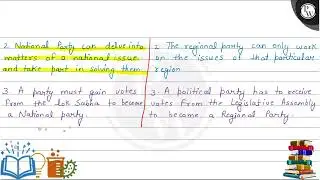 2. National Party can delve into
matters of a national issue
and take part in solving them
3. A party must gain votes
From the Lok Sabha to become
a National party.
2. The regional party can only work
on the issues of that particular
region
3. A political party has to receive
votes From the Legislative Assembly
to become a Regional Party.